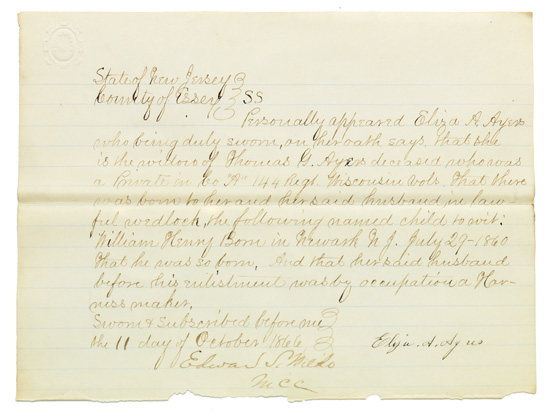 State of New Jersey
County of Essex SS
Personally appeared Eliza A. Ayers
who being duly sworn, on her oath says, that she
is the widow of Thomas G. Ayers deceased who was
a Private in Co "A" 144 Regt. Wisconsin Vols. That there
was born to her and her said husband, in law-
ful wedlock, the following named child to wit:
William Henry Born in Newark N. J. July 29-1860
That he was so born, And that her said husband
before his enlistment was by occupation a Har-
niss maker.
Sworn & Subscribed before me
the 11 day of October 1866
Eliza. A. Ayres
M C C